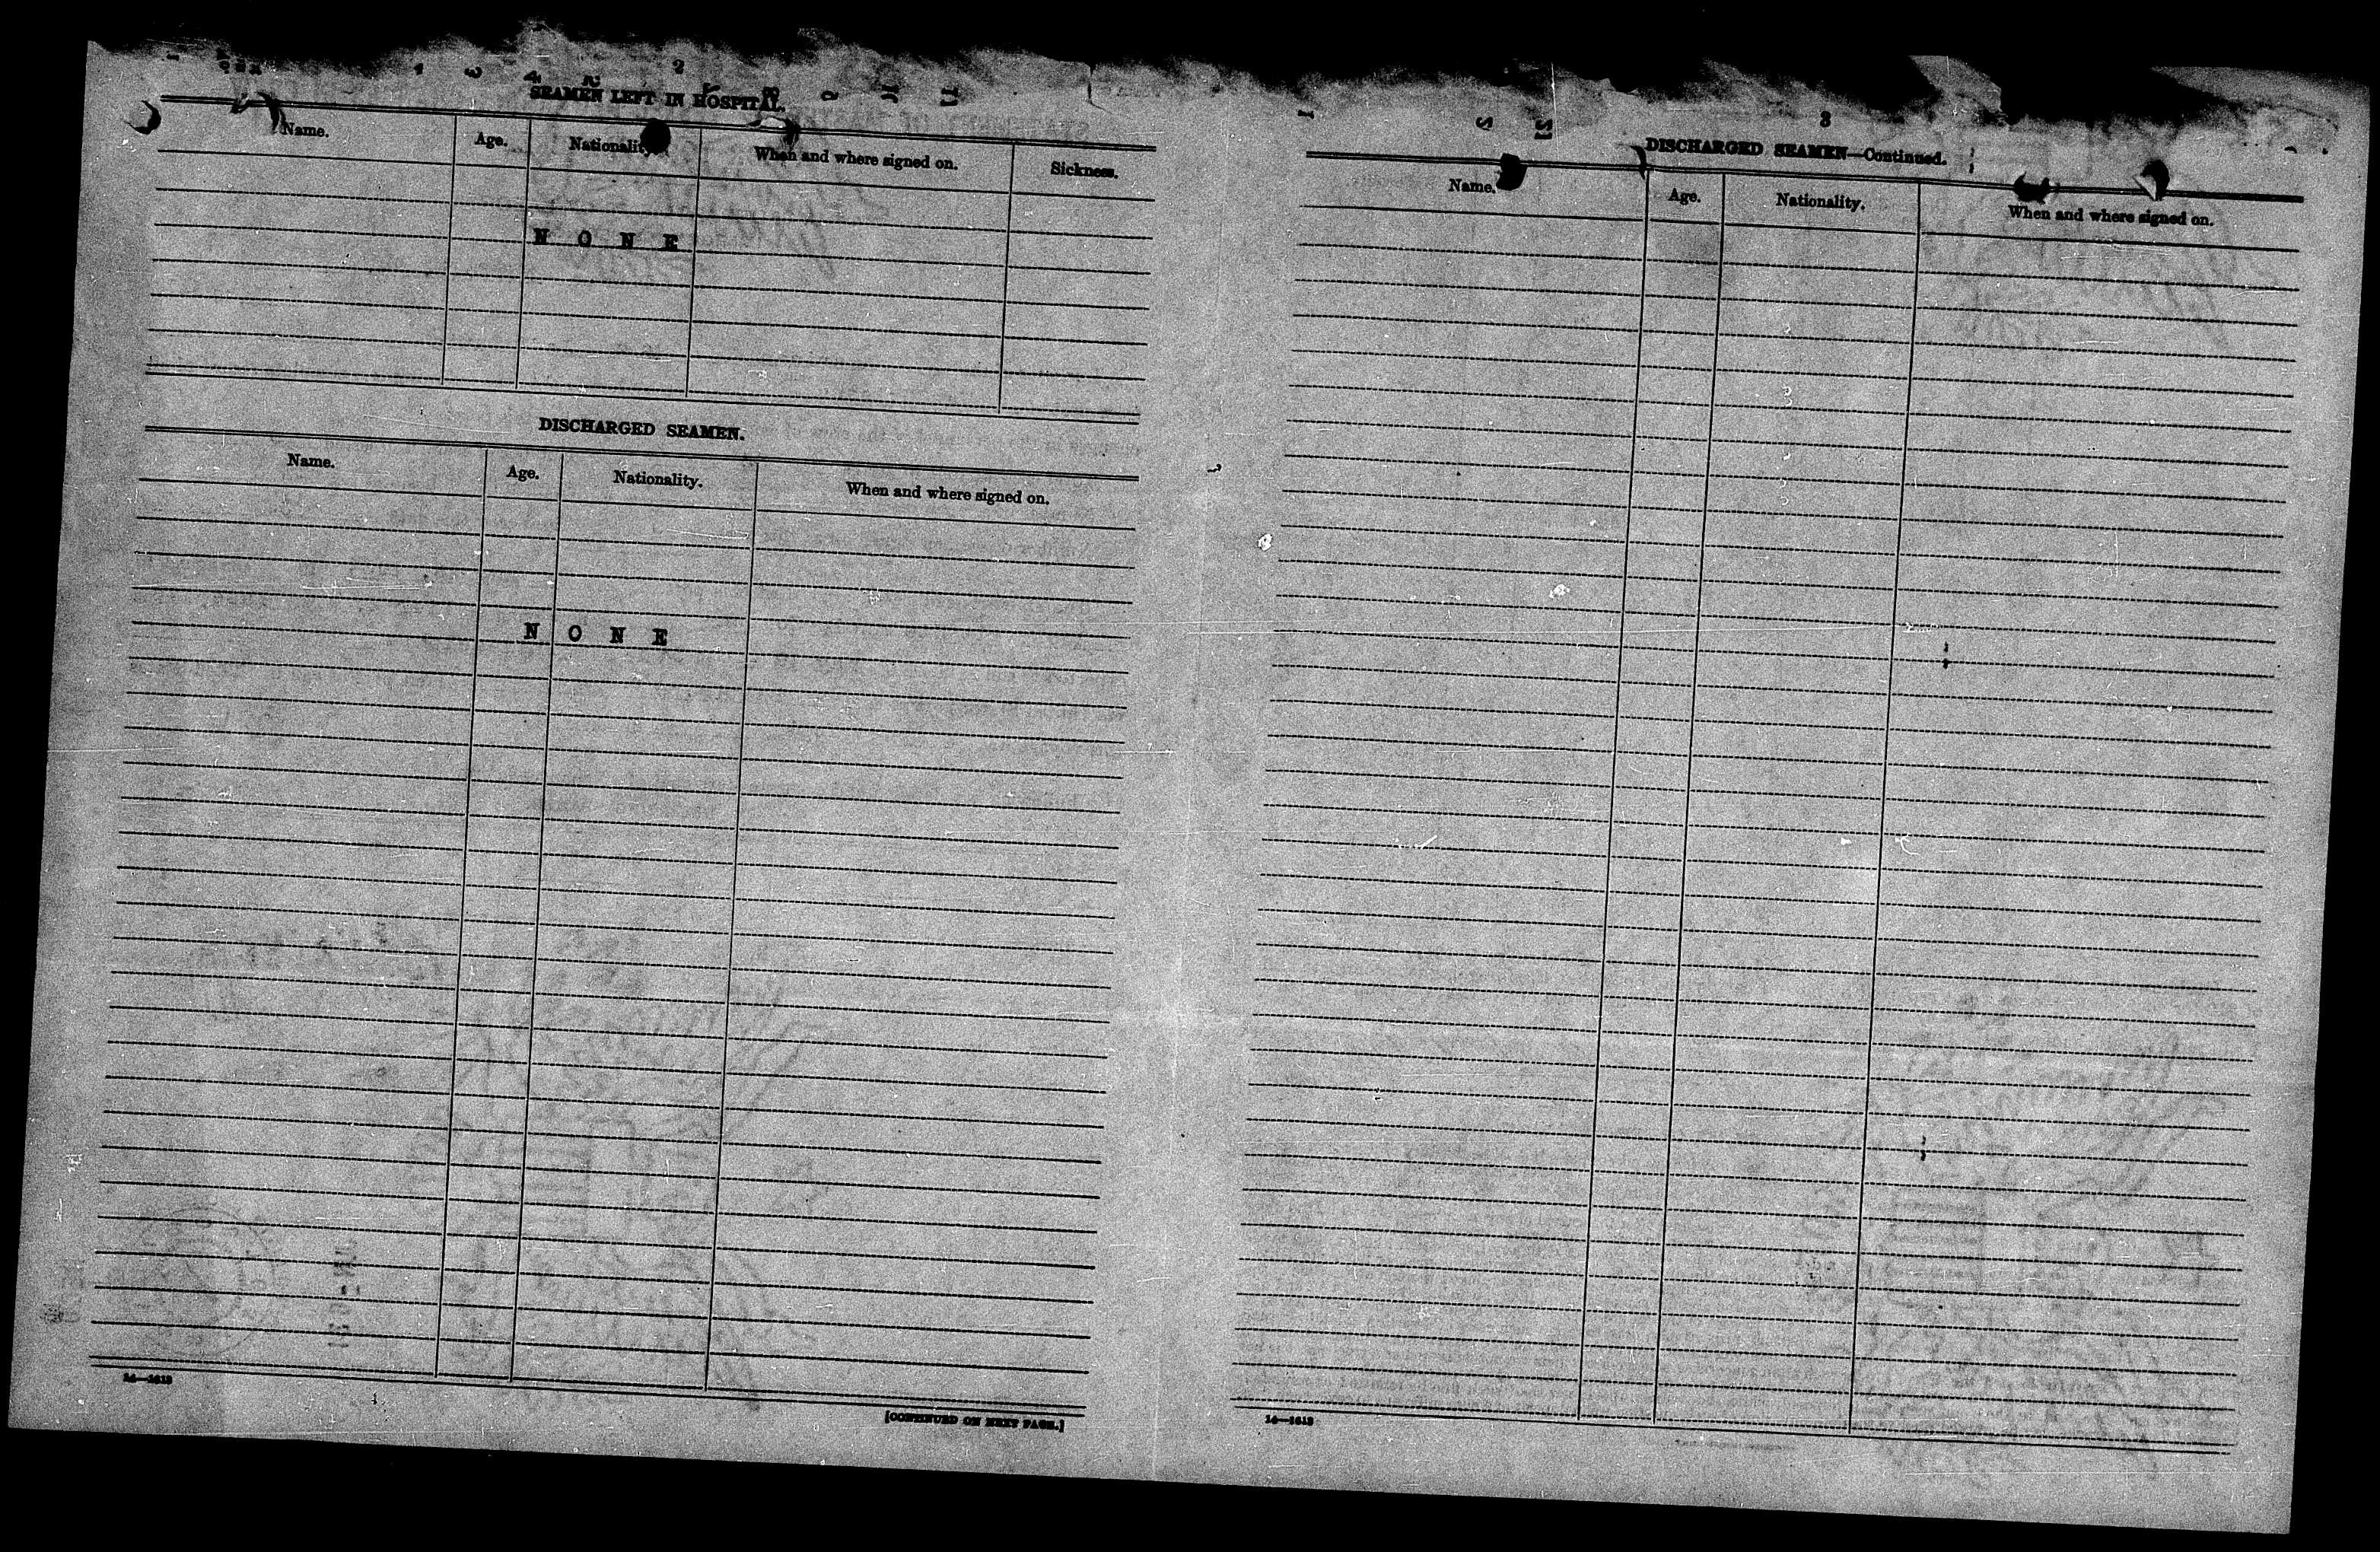 2
SEAMEN LEFT IN HOSPITAL.
Name. Age. Nationality. When and where signed on. Sickness.
N O N E
DISCHARGED SEAMEN.
Name. Age. Nationality. When and where signed on.
N O N E
14—1613
[CONTINUED ON NEXT PAGE.]
3
DISCHARGED SEAMEN—Continued.
Name. Age. Nationality. When and where signed on.
14—1613